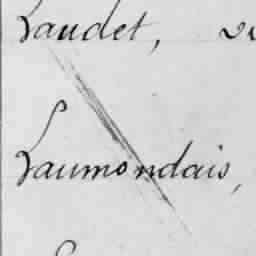 Laudet,
Laumondais,